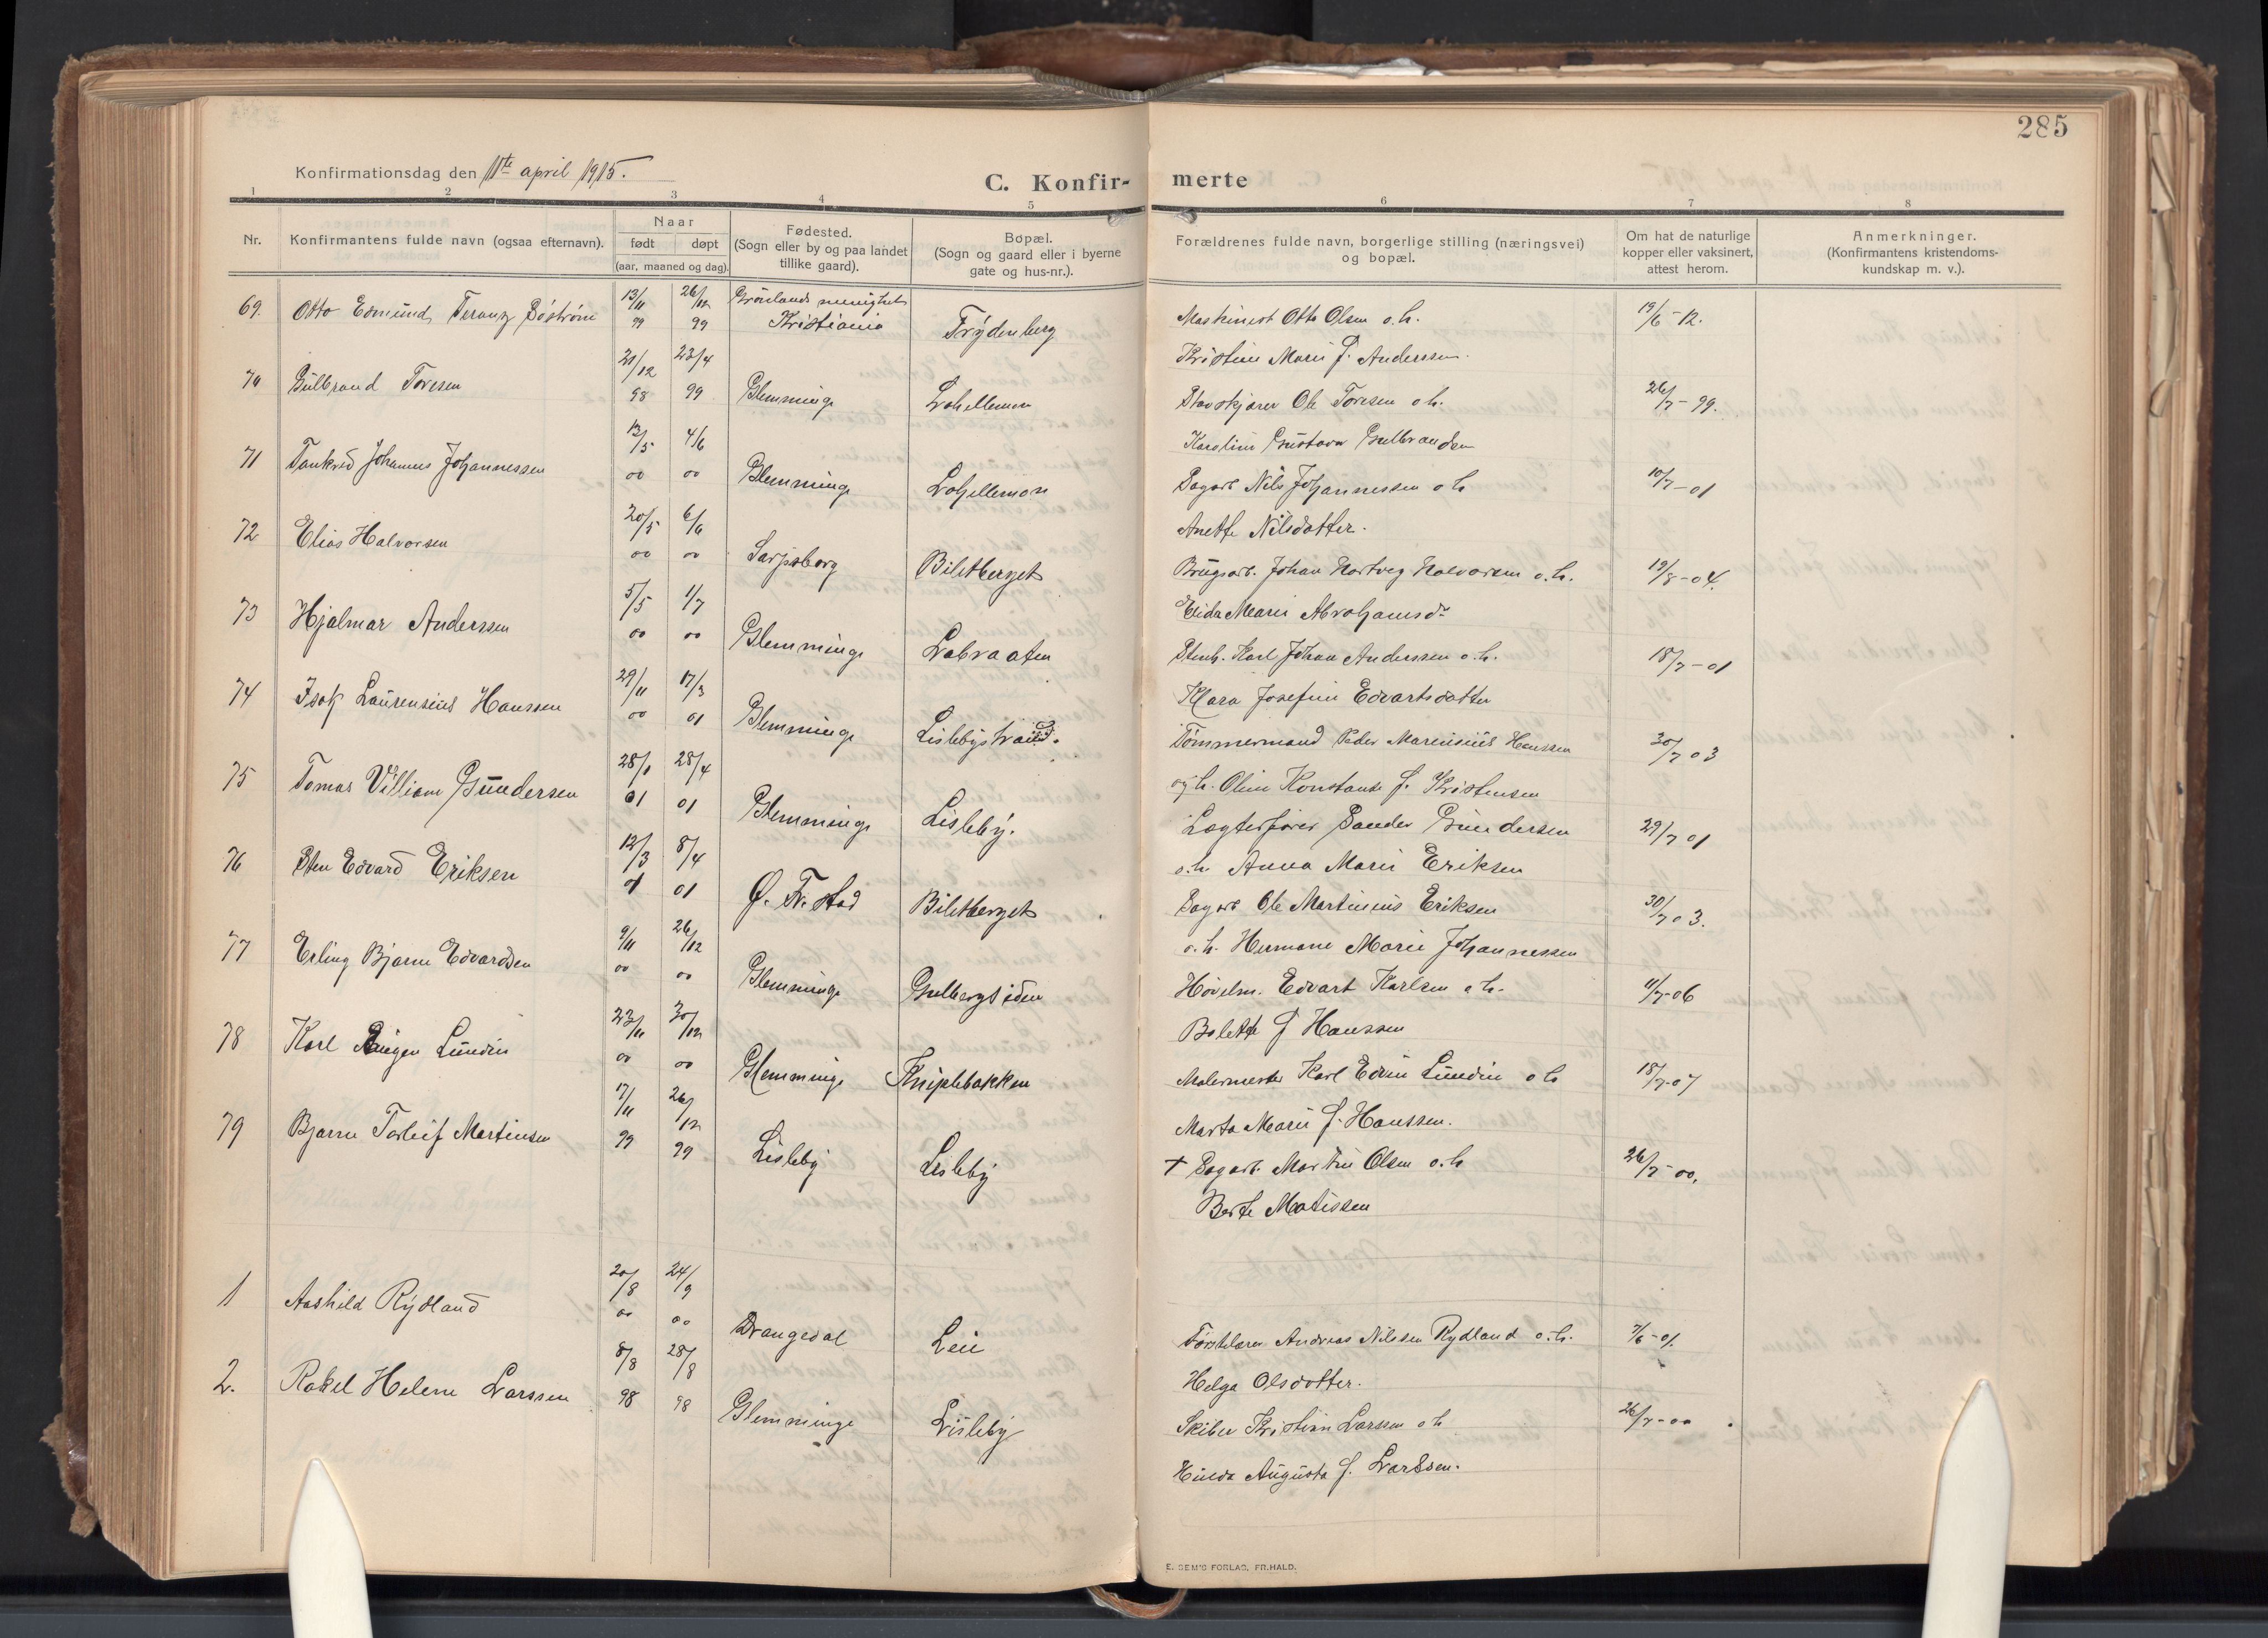 285
Konfirmationsdag den 11te april 1915.
C. Konfir- merte
1 2 3 4 5 6 7 8
Nr.
Konfirmantens fulde navn (ogsaa efternavn).
Naar
født døpt
(aar, maaned og dag).
Fødested.
(Sogn eller by og paa landet
tillike gaard).
Bopæl.
(Sogn og gaard eller i byerne
gate og hus-nr.).
Forældrenes fulde navn, borgerlige stilling (næringsvei)
og bopæl.
Om hat de naturlige
kopper eller vaksinert,
attest herom.
Anmerkninger.
(Konfirmantens kristendoms-
kundskap m. v.).
69. Otto Edmund 13/11 99 26/12 99 Grönlands menighet Kristiania Trydenberg Maskinist Otto Olsen o.h. 19/6-12.
Kristine Marie f. Anderssen.
70 Gulbrand Toresen 21/12 98 23/4 99 Glemminge Ole Toresen o.h. 26/7-99.
Karoline Gustava Gulbrandsen
71 Tankred Johannes Johannessen 13/5 00 4/6 00 Glemminge Sagarb. Nils Johannessen o.h. 10/7-01
Anette Nilsdatter.
72 Elias Halvorsen 20/5 00 6/6 00 Sarpsborg Biletberget Brugsarb. Johan Hartvig Halvorsen o.h. 19/8-04.
Elida Marie Abrahamsd.
73 Hjalmar Anderssen 5/5 00 1/7 00 Glemminge Labraaten Stenh. Karl Johan Anderssen o.h. 18/7-01
Klara Josefine Edvartsdatter
74 Isak Laurensius Hanssen 29/11 00 17/3 01 Glemminge Lislebystrand. Tømmermand Peder Marensius Hanssen 30/7 03
og h. Oline Konstanse f. Kristensen
75 Tomas Villiam Gundersen 28/1 01 28/4 01 Glemminge Lisleby. Lægterfører Sander Gundersen 29/7 01
o.h. Anna Marie Eriksen
76 Sten Edvard Eriksen 12/3 01 8/4 01 Ø. Fr.stad Biletberget Sagarb Ole Martinius Eriksen 30/7 03.
o.h. Hermane Marie Johannessen
77 Erling Bjarne Edvardsen 9/11 00 26/12 00 Glemminge Gulbergsiden Høvelm. Edvart Karlsen o.h. 11/7-06
Bolette f Hanssen
78 Karl Eugen Lundin 23/11 00 30/12 00 Glemminge Kniplebakken Malermester Karl Edvin Lundin o h 18/7-07
Marta Marie f. Hanssen.
79 Bjarne Torleif Martinsen 17/11 99 26/12 99 Lisleby Lisleby + Sagarb. Martin Olsen o.h 26/7-00.
Berte Matissen
1 Aashild Rydland 20/8 00 24/9 00 Drangedal Leie Førstelærer Andreas Nilssen Rydland o.h. 7/6-01.
Helga Olsdatter.
2. Rakel Helene Larssen 8/8 98 28/8 98 Glemminge Lisleby Skiber Kristian Larssen o h 26/7-00
Hulda Augusta f. Larssen.
E. SEM'S FORLAG, FR.HALD.